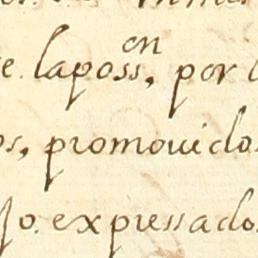 e. la poss.on, por l
os, promouidos
jo. expressados